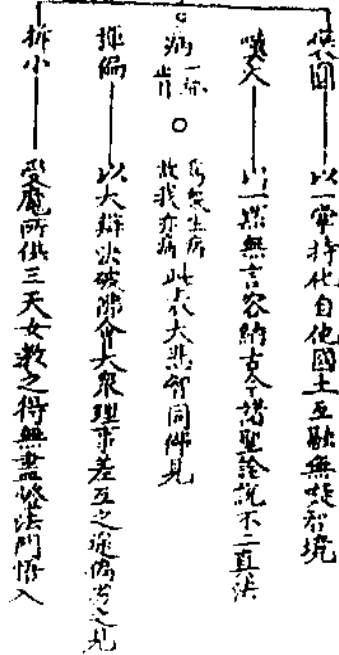 圓——以一掌持化自他國土互融無礙智境
嘆大——以一默無言容納古今諸聖詮說不二真法
病
為眾生病
故我亦病 此表大悲智同佛見
彈偏——以大辯決破佛會大眾理事差互之途偏劣之見
折小——受魔所供三天女教之得無盡燈法門悟入